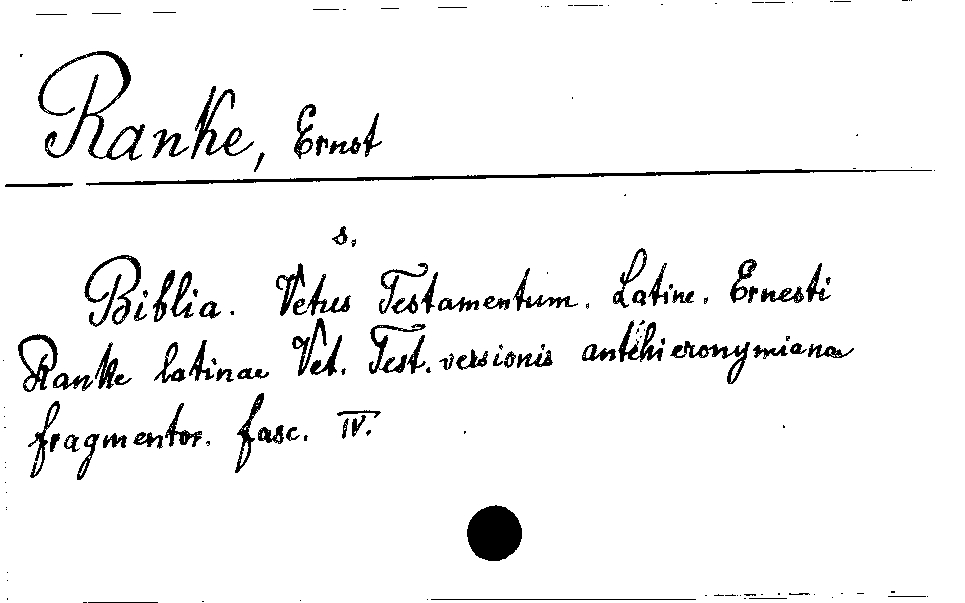 Ranke, Ernst
s.
Biblia. Vetus Testamentum. Latine. Ernesti
Ranke latinae Vet. Test. versionis antehieronymianae
fragmentor. fasc. IV.